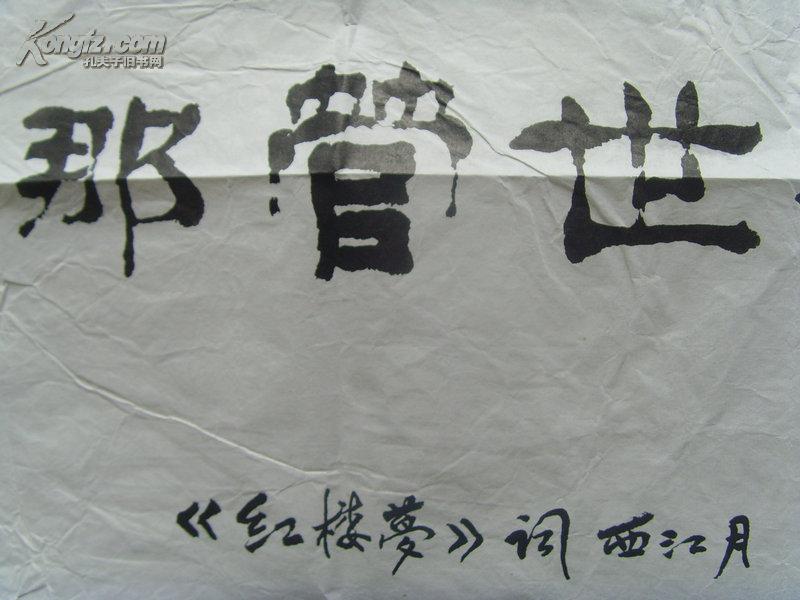 Kongfz.com
孔夫子旧书网
那管世
《红楼夢》词 西江月